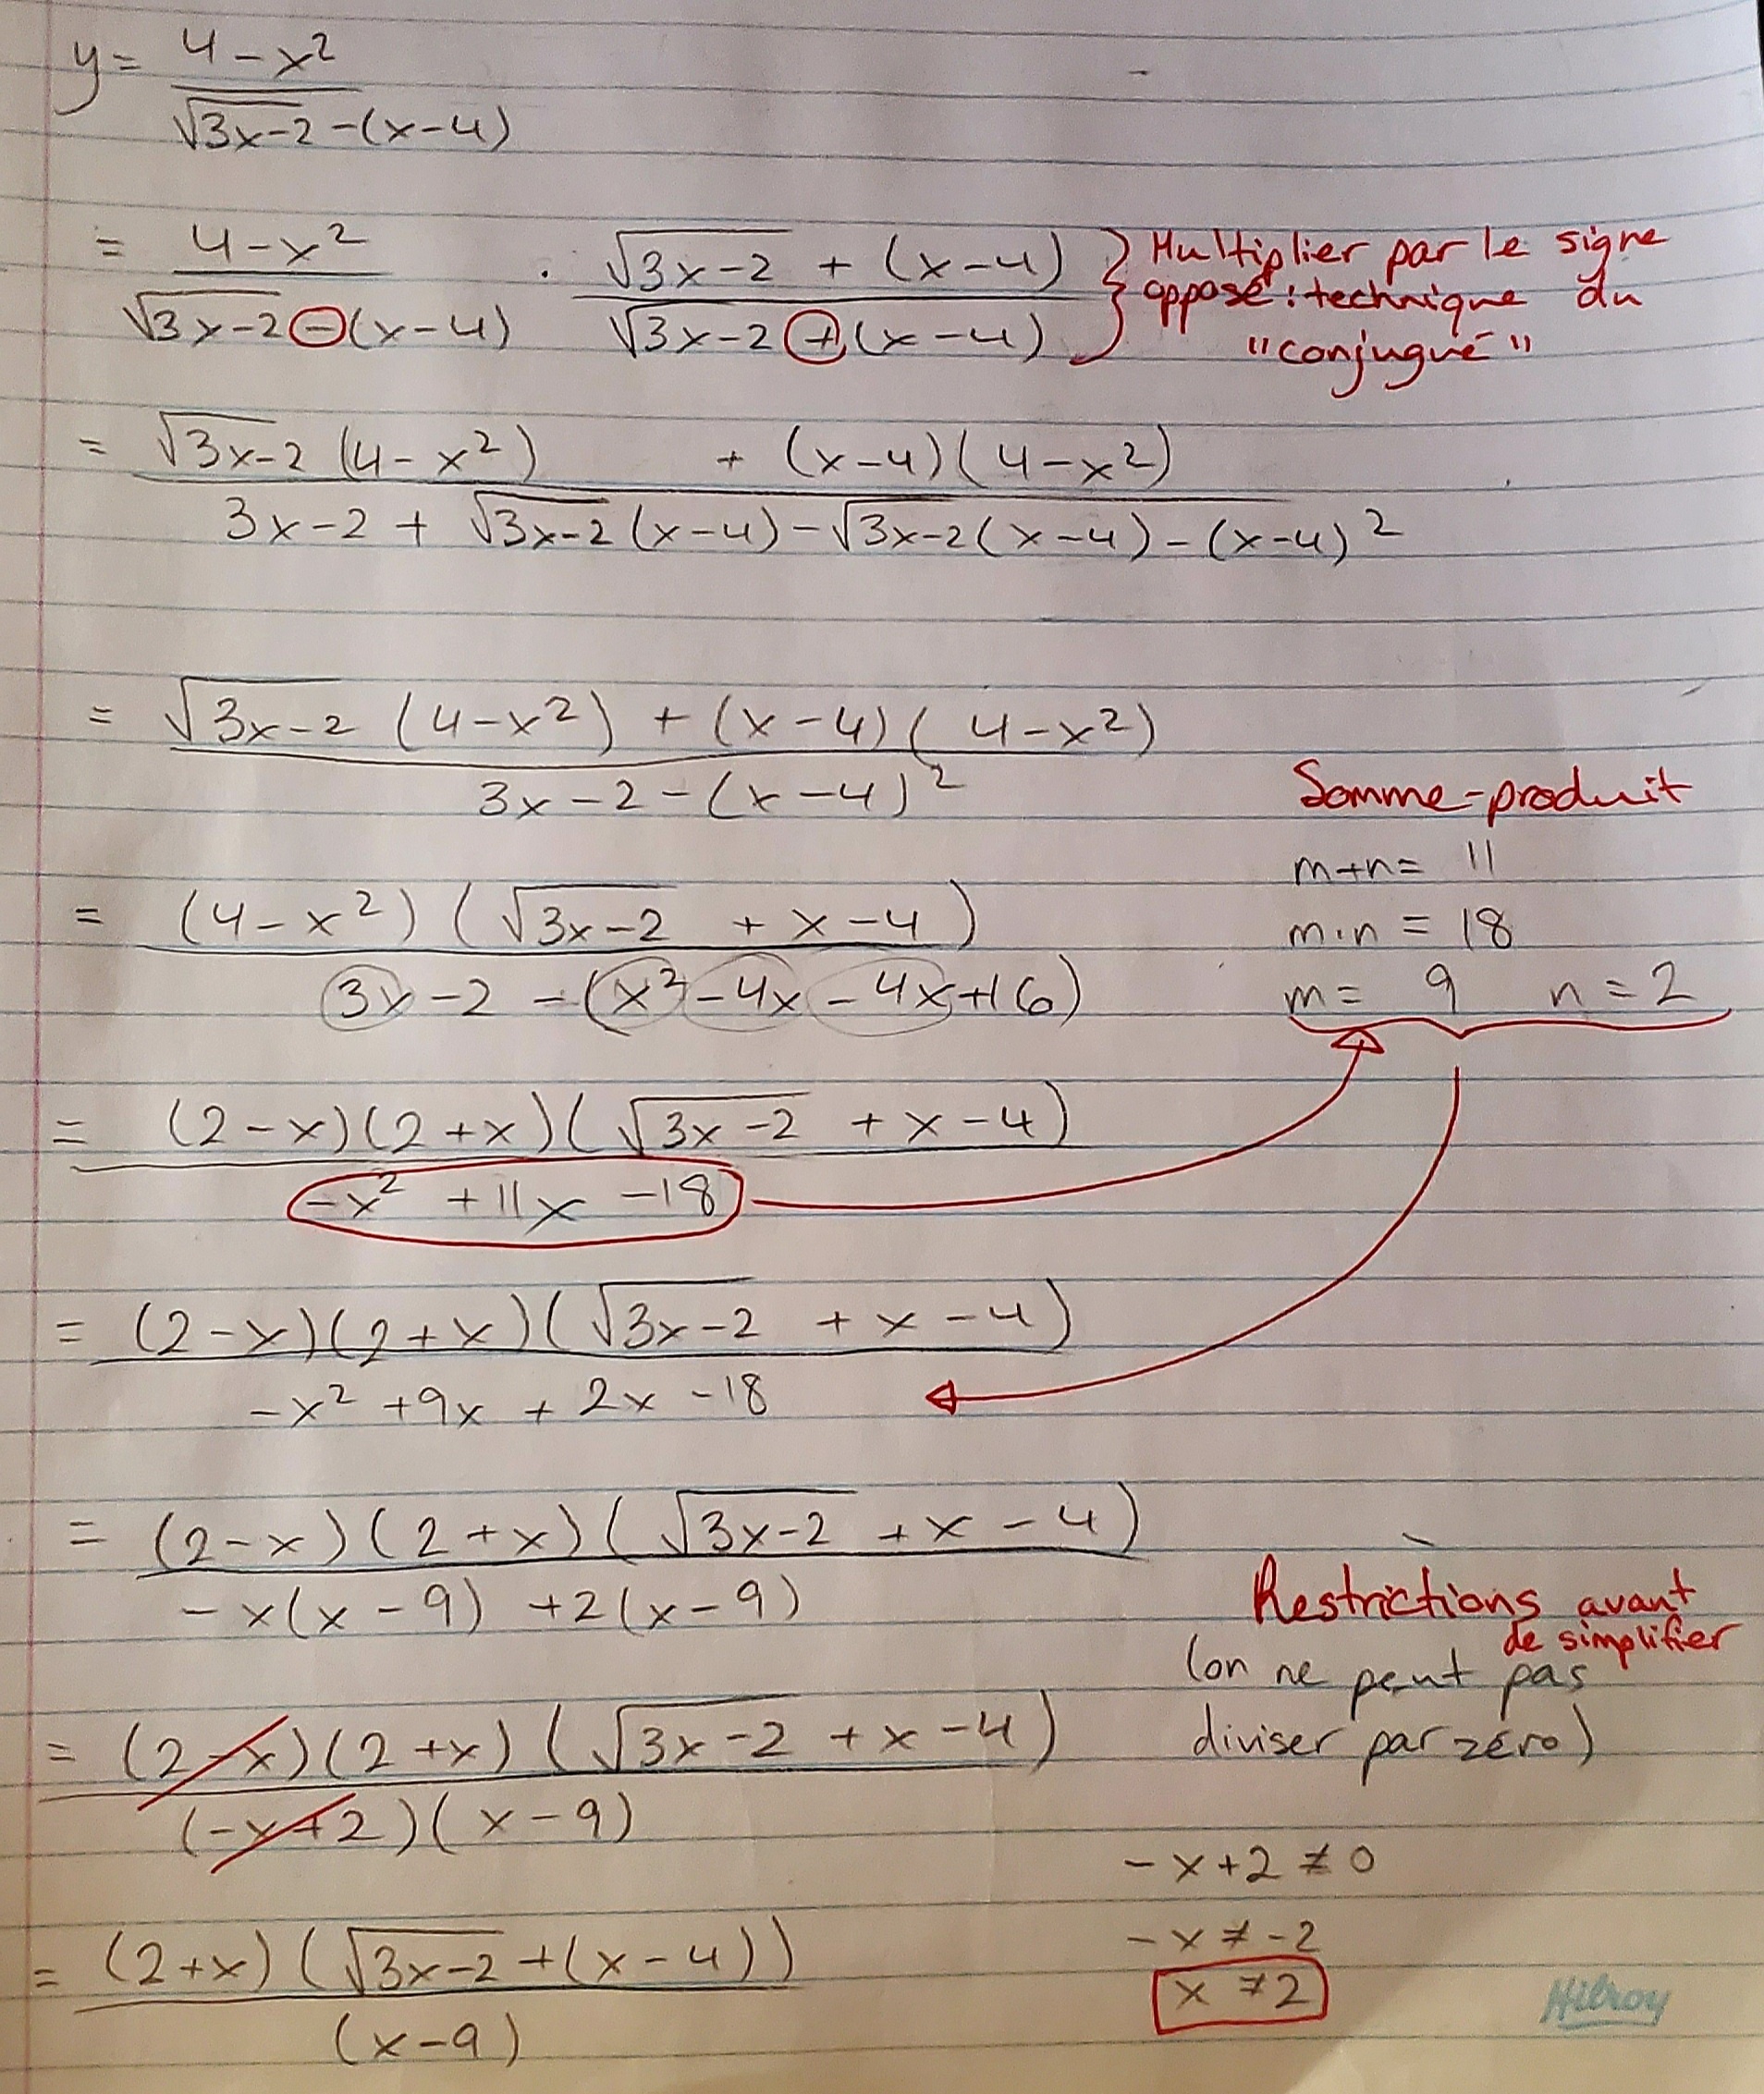 y = (4-x²)/(√(3x-2) -(x-4))
= (4-x²)/(√(3x-2) -(x-4)) · (√(3x-2) + (x-4))/(√(3x-2) +(x-4)) } Multiplier par le signe
opposé : technique du
"conjugué"
= (√(3x-2) (4-x²) + (x-4)(4-x²))/(3x-2 + √(3x-2) (x-4) - √(3x-2) (x-4) - (x-4)²)
= (√(3x-2) (4-x²) + (x-4)(4-x²))/(3x-2-(x-4)²)
Somme-produit
m+n= 11
m·n = 18
m= 9 n=2
= ((4-x²)(√(3x-2) + x-4))/(3x-2 -(x²-4x-4x+16))
= ((2-x)(2+x)(√(3x-2) + x-4))/(-x² +11x -18)
= ((2-x)(2+x)(√(3x-2) + x-4))/(-x² +9x + 2x -18)
= ((2-x)(2+x)(√(3x-2) +x-4))/(-x(x-9) +2(x-9))
Restrictions avant
de simplifier
(on ne peut pas
diviser par zéro)
= ((2-x)(2+x)(√(3x-2) + x-4))/((-x+2)(x-9))
-x+2 ≠ 0
-x ≠ -2
x ≠ 2
= ((2+x)(√(3x-2) +(x-4)))/(x-9)
Hilroy